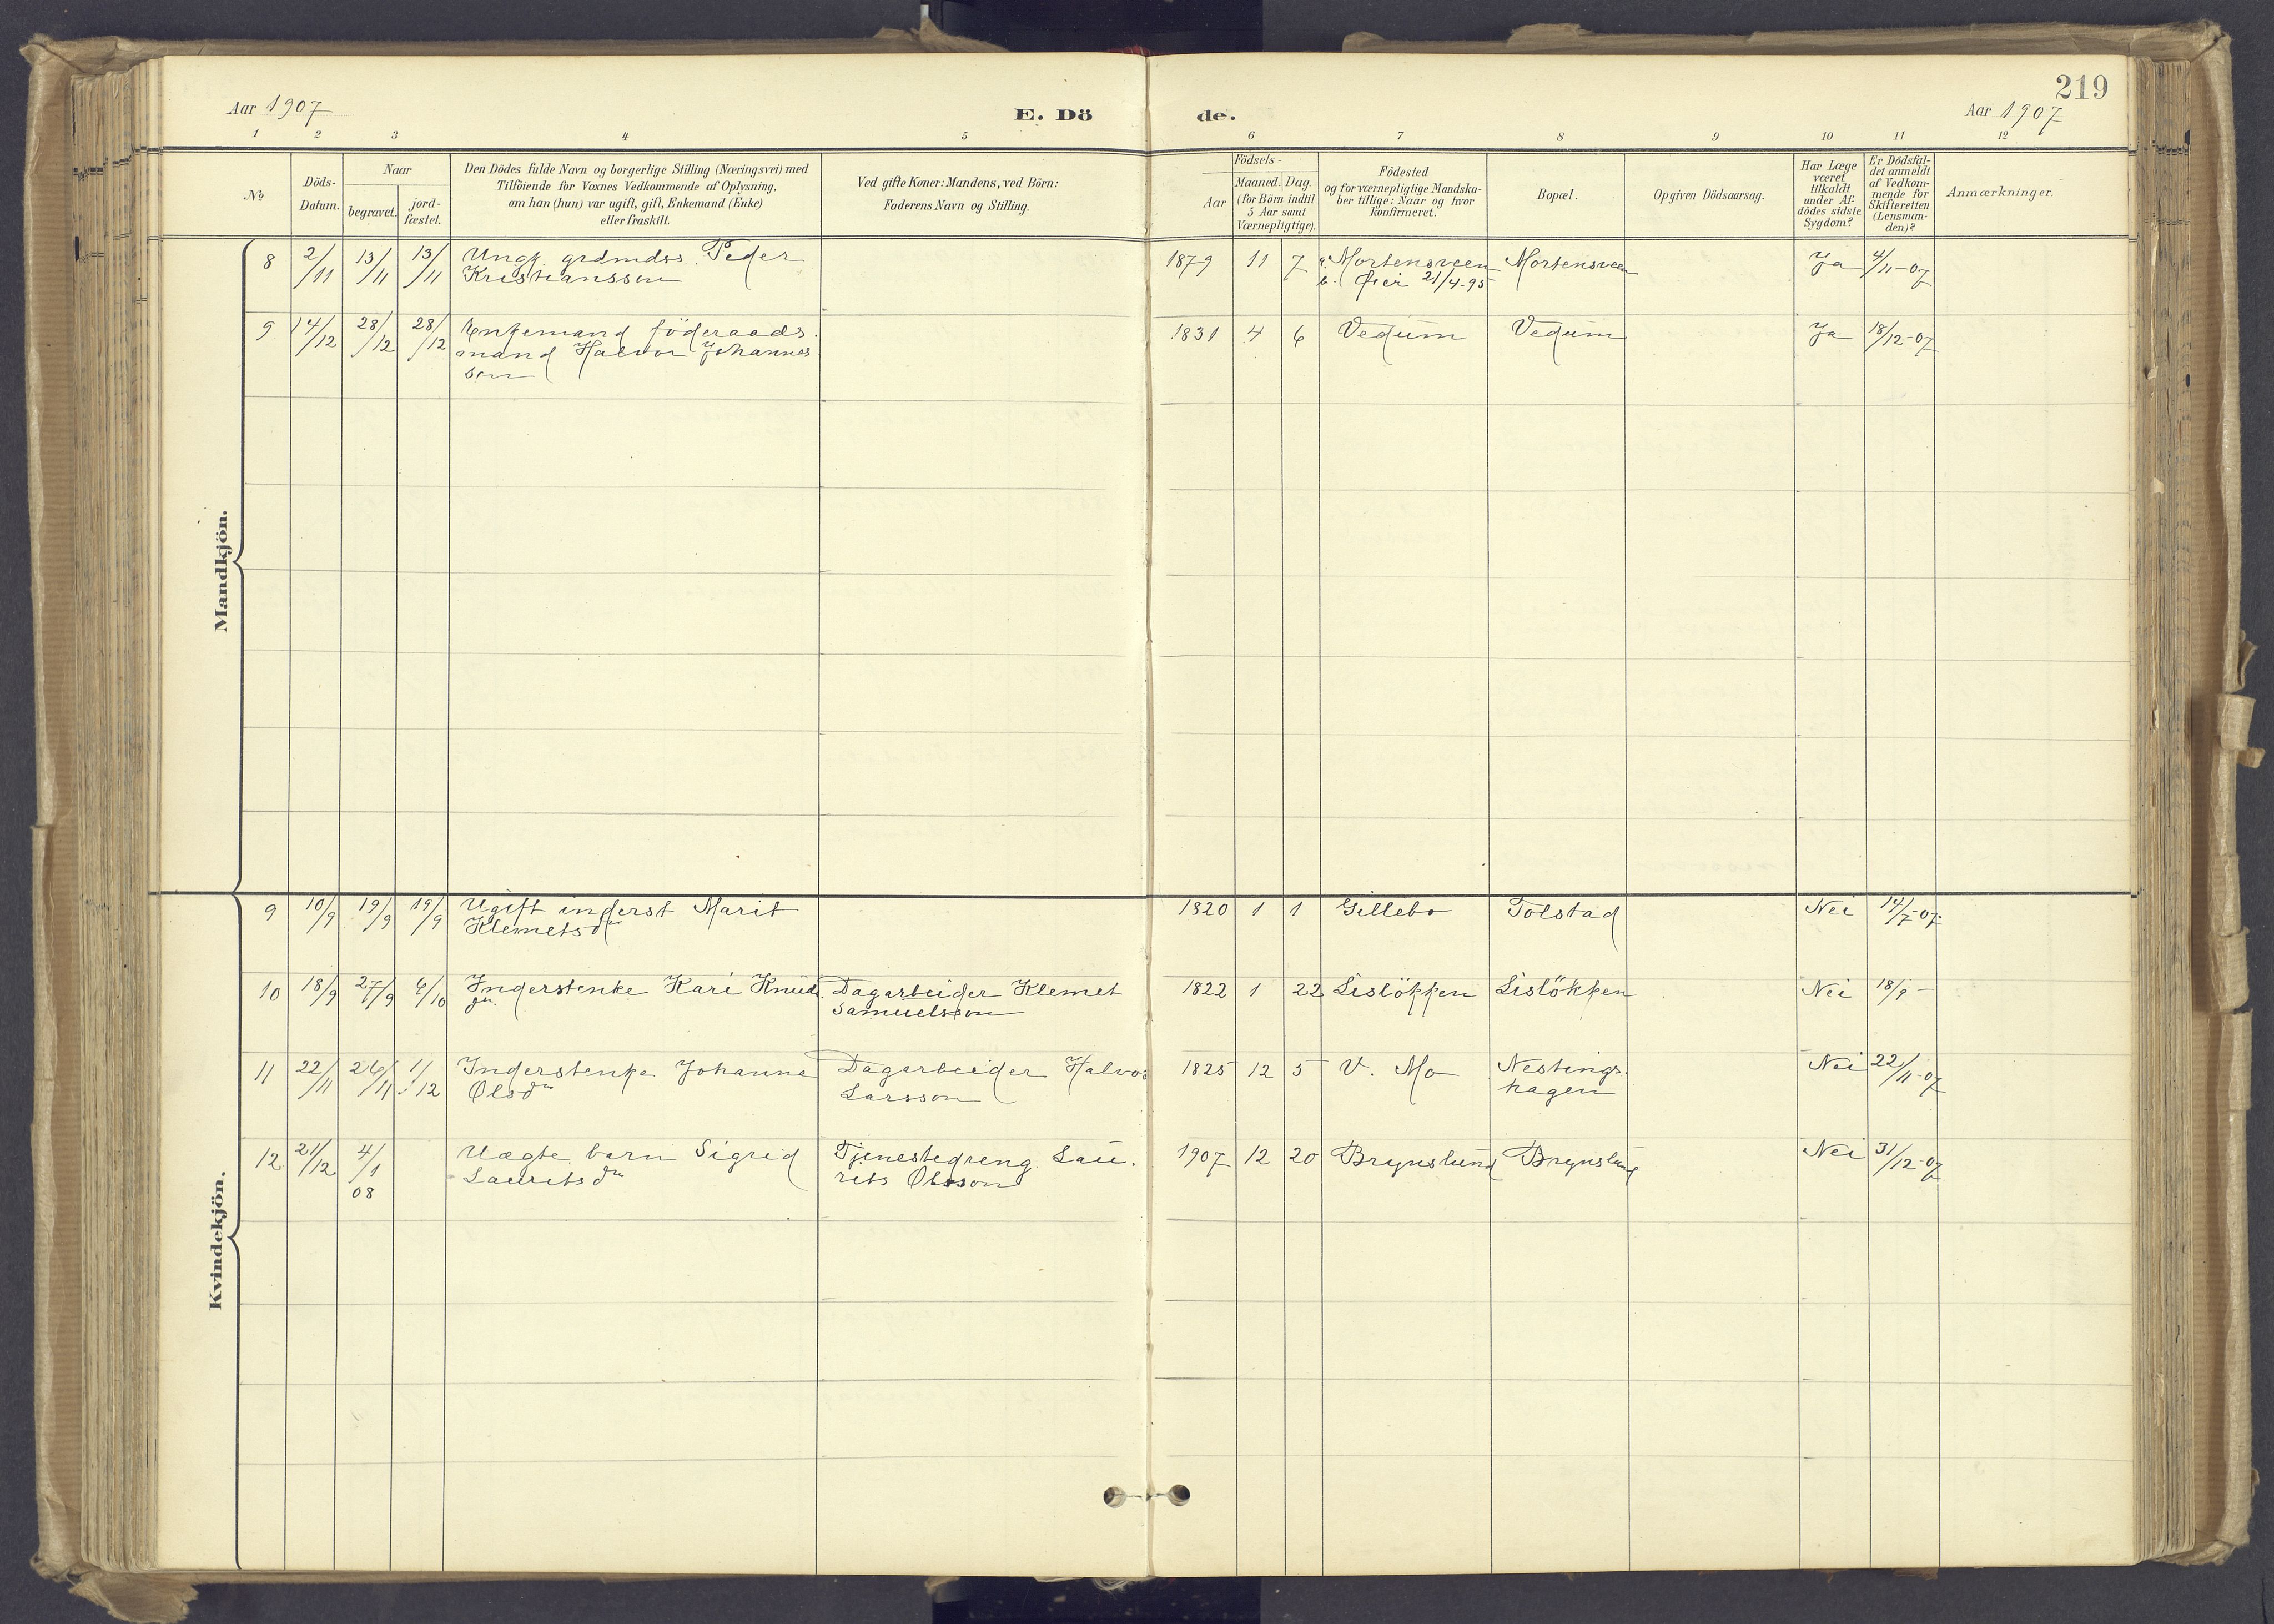 219
Aar 1907 E. Dö de. Aar 1907
1 2 3 4 5 6 7 8 9 10 11 12
№
Döds-
Datum.
Naar
begravet.
jord-
fæstet.
Den Dödes fulde Navn og borgerlige Stilling (Næringsvei) med
Tilföiende for Voxnes Vedkommende af Oplysning,
om han (hun) var ugift, gift, Enkemand (Enke)
eller fraskilt.
Ved gifte Koner: Mandens, ved Börn:
Faderens Navn og Stilling.
Födsels-
Aar
Maaned. Dag.
(for Börn indtil
5 Aar samt
Værnepligtige).
Födested
og for værnepligtige Mandska-
ber tillige: Naar og hvor
konfirmeret.
Bopæl.
Opgiven Dödsaarsag.
Har Læge
været
tilkaldt
under Af-
dödes sidste
Sygdom?
Er Dödsfal-
det anmeldt
af Vedkom-
mende for
Skifteretten
(Lensman-
den)?
Anmærkninger.
Mandkjön.
8 2/11 13/11 13/11 Ungk. grdmdss. Peder 1879 11 7 Mortensveen Mortensveen Ja 4/11-07
Kristiansson Öier 21/4-95
9 14/12 28/12 28/12 Enkemand föderaads- 1831 4 6 Vedum Vedum Ja 18/12-07
mand Halvor Johannes
son
Kvindekjön.
9 10/9 19/9 19/9 Ugift inderst Marit 1820 1 1 Gillebo Tolstad Nei 14/7-07
Klemetsdtr
10 18/9 27/9 6/10 Inderstenke Kari Knuds Dagarbeider Klemet 1822 1 22 Lislökken Lislökken Nei 18/9 -
dtr Samuelsson
11 22/11 26/11 1/12 Inderstenke Johanne Dagarbeider Halvor 1825 12 5 V. Mo Nestings- Nei 22/11-07
Olsdtr Larsson hagen
12 21/12 4/1 Uægte barn Sigrid Tjenestedreng Lau- 1907 12 20 Brynslund Brynslund Nei 31/12-07
08 Lauritsdtr rits Olsson